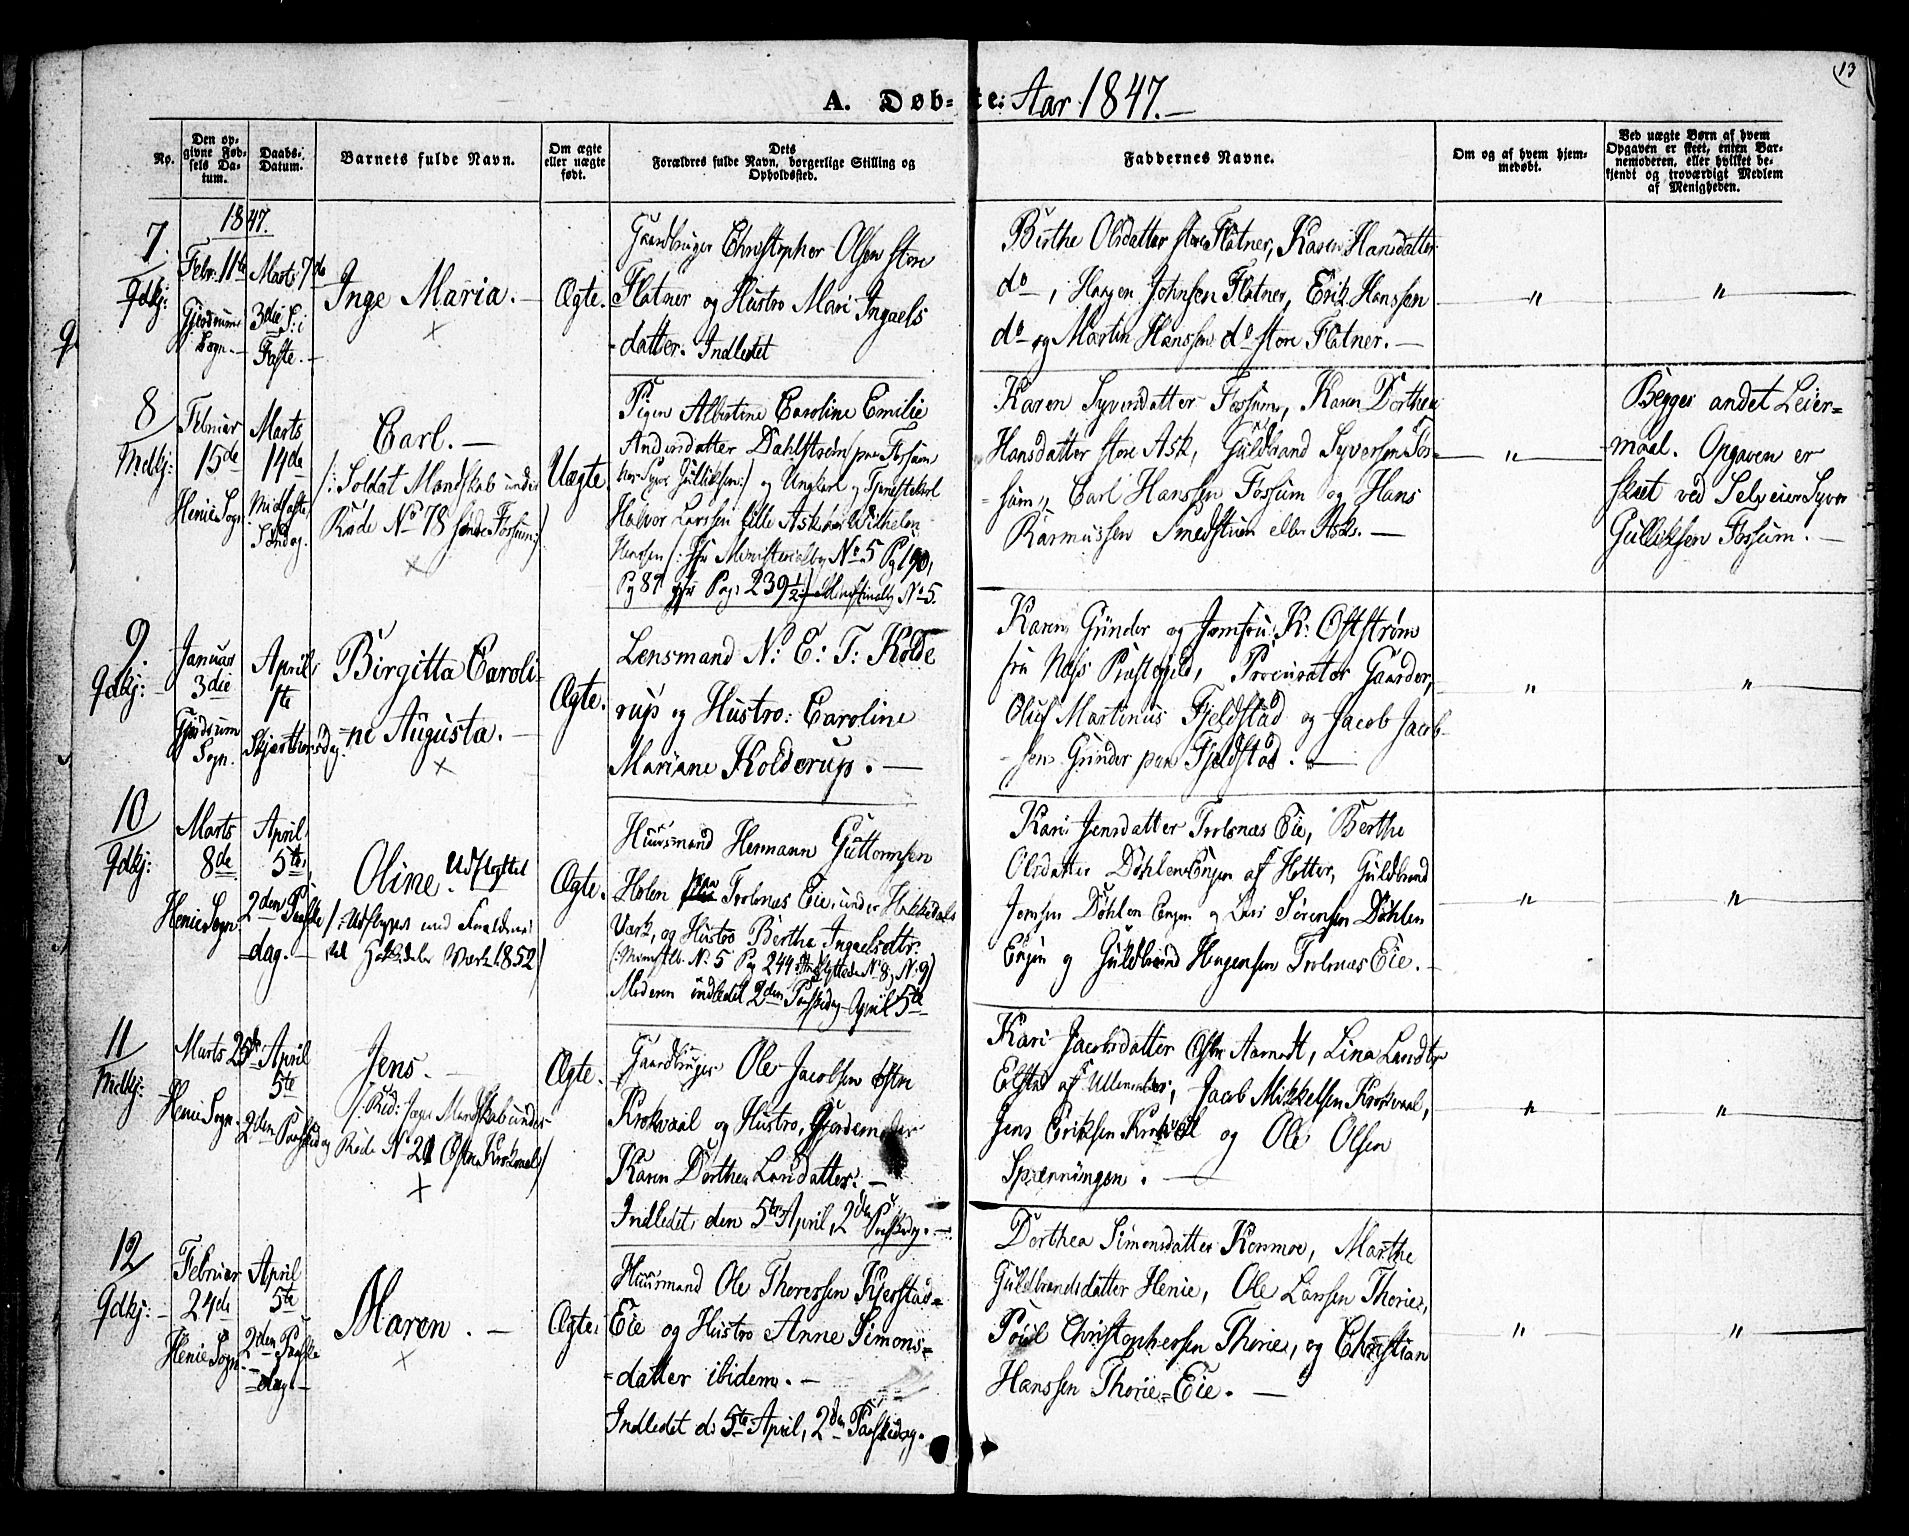 13
A. Døb-te: Aar 1847.-
No.
Den op-
givne Fød-
sels Da-
tum.
Daabs-
Datum.
Barnets fulde Navn.
Om ægte
eller uægte
født.
Dets
Forældres fulde Navn, borgerlige Stilling og
Opholdssted.
Faddernes Navne.
Om og af hvem hjem-
medøbt.
Ved uægte Børn af hvem
Opgaven er skeet, enten Bar-
nemoderen, eller hvilket be-
kjendt og troværdigt Medlem
af Menigheden.
1847.
7
Qdkj:
Febr. 11te
Gjerdrum
Sogn.-
Marts 7de
3die S: i
Faste.-
Inge Maria.-
Ægte.
Gaardbruger Christopher Olsen store
Flatner og Hustro Mari Ingaels
-datter. Indledet
Birthe Olsdatter store Flatner, Karen Hansdatter
do, Haagen Johnsen Flatner, Erik Hanssen
do og Martin Hanssen do store Flatner.-
"
"
8
Mdkj:
Februar
15de
Henie Sogn
Marts
14de
Midfaste
Søndag.
Carl.-
/: Soldat Mandskab under
Rode No 78 søndre Fossum:/
Uægte
Pigen Albertine Caroline Emilie
Andersdatter Dahlstrøm paa Fossum
hos Syver Gulliksen:/ og Ungkarl og Tjenestekarl
Halvor Larssen lille Ask hos Wilhelm
Hansen /: No 5 Pag 190,
Pag 87 Pag: 239 1/2 No 5.
Karen Syversdatter Fossum, Karen Dorthea
Hansdatter store Ask, Guldbrand Syversen Fos-
-sum, Carl Hanssen Fossum og Hans
Rasmussen Smedstuen eller Ask.-
"
Begges andet Leier-
-maal. Opgaven er
skeet ved Selveier Syver
Gulliksen Fossum.-
9
Qdkj:
Januar
3die
Gjerdrum
Sogn.
April
1te
Skjærthorsdag
Birgitta Caroli-
-ne Augusta.-
Ægte.
Lensmand N: E: T: Kolde
rup og Hustro: Caroline
Mariane Kolderup.-
Karen Gunder og Jomfru K: Oftstrøm
fra Næs Præstegield, Procurator Gaarder,
Oluf Martinus Fjeldstad og Jacob Jacob-
-sen Gunder paa Fjeldstad.-
"
"
10
Qdkj:
Marts
8de
Henie Sogn
April
5te
2den Paaske
-dag.-
Oline. Udflyttet
/: Udflyttet med Forældrene
til Hakkedals Værk 1852:/
Ægte.
Huusmand Hermann Guttormsen
Holen paa Trolsnæs Eie, under Hakkedals
Værk, og Hustro Berthe Ingaelsdttr:
No 5 Pag 244 Indflyttede No 8, No 9)
Moderen indledet 2den Paaskedag April 5te
Kari Jensdatter Trolsnæs Eie, Berthe
Olsdatter Døhlen Engen af Hotter, Guldbrand
Jensen Døhlen Engen og Lars Sørensen Døhlen
Engen og Guldbrand Hagensen Trolsnæs Eie.-
"
"
11
Mdkj:
Marts 25de
Henie Sogn.
April
5te
2den Paaskedag
Jens.-
/: Mandskab under
Rode No 21 Østre Krokvaal:/
Ægte.
Gaardbruger Ole Jacobsen østre
Krokvaal og Hustro, Gjordemoder
Karen Dorthea Larsdatter.-
Indledet den 5te April, 2den Paaskedag.-
Kari Jacobsdatter Østre Aamodt, Lina Larsdtr
Elstad af Ullensaker, Jacob Mikkelsen Krokvaal,
Jens Eriksen Krokvaal og Ole Olsen
Spænningen.-
"
"
12
Qdkj:
Februar
24de
Henie Sogn
April
5te
2den Paaske
-dag.-
Maren.-
Ægte.
Huusmand Ole Thoressen Kjerstad-
Eie og Hustro Anne Simons-
-datter ibidem.-
Indledet d: 5te April, 2den Paaskedag.
Dorthea Simensdatter Kenmoe, Marthe
Guldbrandsdatter Henie, Ole Larssen Thorie,
Poul Christophersen Thorie, og Christian
Hanssen Thorie-Eie.-
"
"